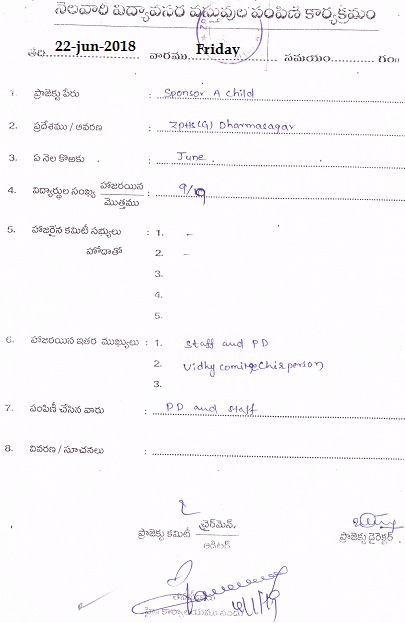 నెలవారీ విద్యావసర వస్తువుల పంపిణీ కార్యక్రమం
తేది 22-jun-2018 వారము Friday సమయం గం॥
1. ప్రాజెక్టు పేరు : Sponsor A child
2. ప్రదేశము / ఆవరణ : ZPHS(G) Dharmasagar
3. ఏ నెల కొఱకు : June
4. విద్యార్థుల సంఖ్య హాజరయిన / మొత్తము : 9/10
5. హాజరైన కమిటీ సభ్యులు : 1. –
హోదాతో 2. –
3.
4.
5.
6. హాజరయిన ఇతర ముఖ్యులు : 1. Staff and PD
2. Vidhy comitee Chirperson
3.
7. పంపిణీ చేసిన వారు : PD and staff
8. వివరణ / సూచనలు :
ప్రాజెక్టు కమిటీ ఛైర్మెన్.
ఆడిటర్
ప్రాజెక్టు డైరెక్టర్